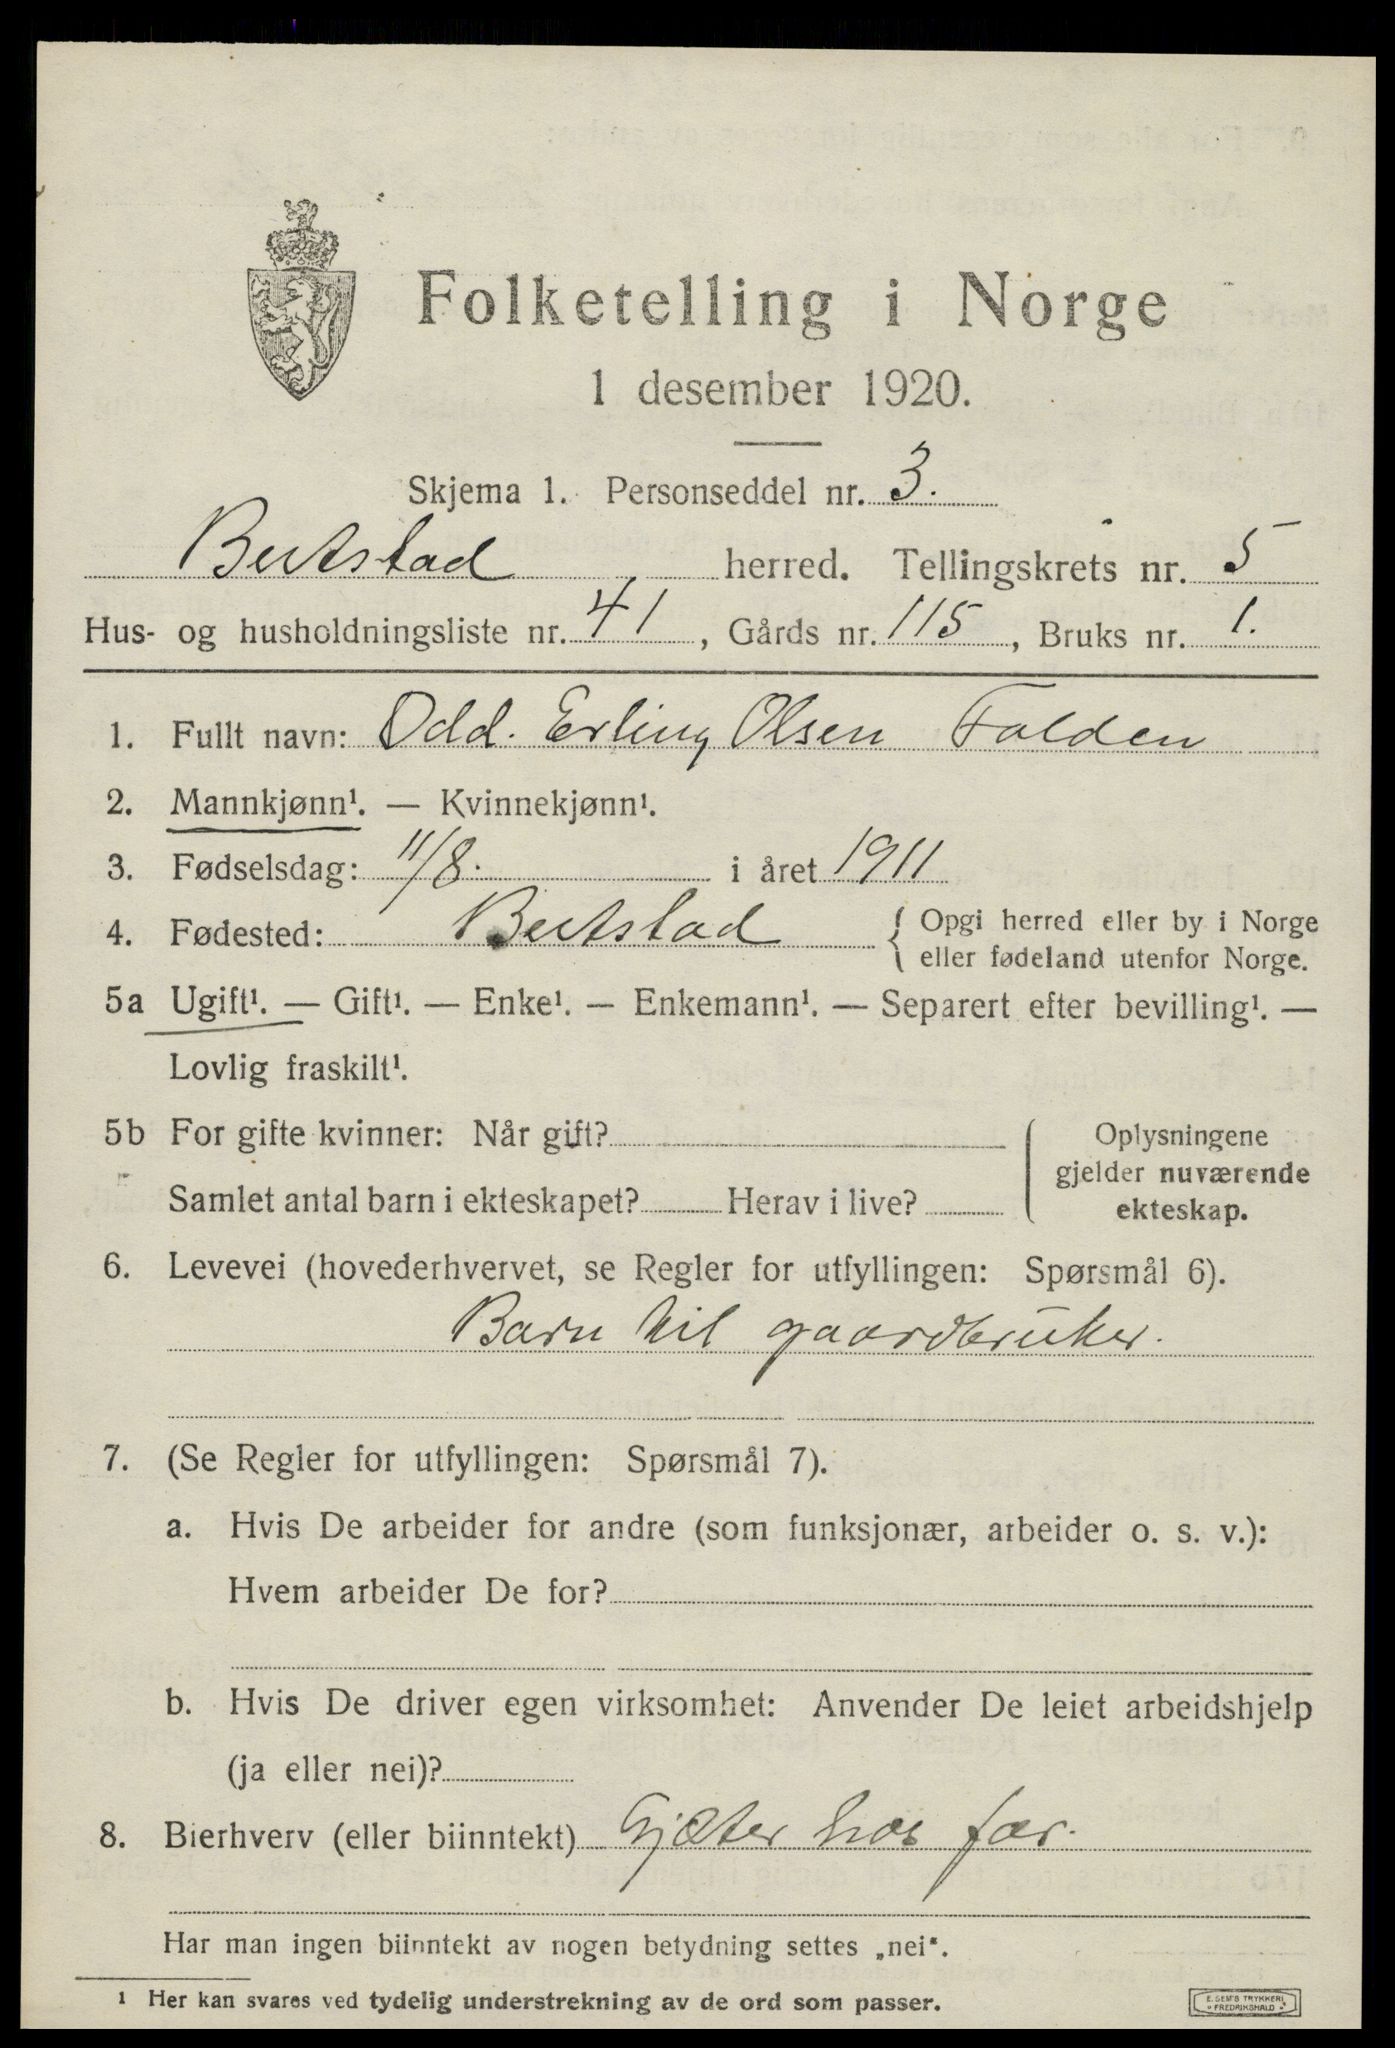 Folketelling i Norge
1 desember 1920.
Skjema 1. Personseddel nr. 3.
Beitstad herred. Tellingskrets nr. 5
Hus- og husholdningsliste nr. 41, Gårds nr. 115, Bruks nr. 1.
1. Fullt navn: Odd. Erling Olsen Folden
2. Mannkjønn¹. — Kvinnekjønn¹.
3. Fødselsdag: 11/8. i året 1911
4. Fødested: Beitstad { Opgi herred eller by i Norge
eller fødeland utenfor Norge.
5a Ugift¹. — Gift¹. — Enke¹. — Enkemann¹. — Separert efter bevilling¹. —
Lovlig fraskilt¹.
5b For gifte kvinner: Når gift?
Samlet antal barn i ekteskapet? Herav i live?
Oplysningene
gjelder nuværende
ekteskap.
6. Levevei (hovederhvervet, se Regler for utfyllingen: Spørsmål 6).
Barn til gaardbruker.
7. (Se Regler for utfyllingen: Spørsmål 7).
a. Hvis De arbeider for andre (som funksjonær, arbeider o. s. v.):
Hvem arbeider De for?
b. Hvis De driver egen virksomhet: Anvender De leiet arbeidshjelp
(ja eller nei)?
8. Bierhverv (eller biinntekt) Gjæter hos far.
Har man ingen biinntekt av nogen betydning settes „nei".
¹ Her kan svares ved tydelig understrekning av de ord som passer.
E. SEM'S TRYKKERI
FREDRIKSHALD